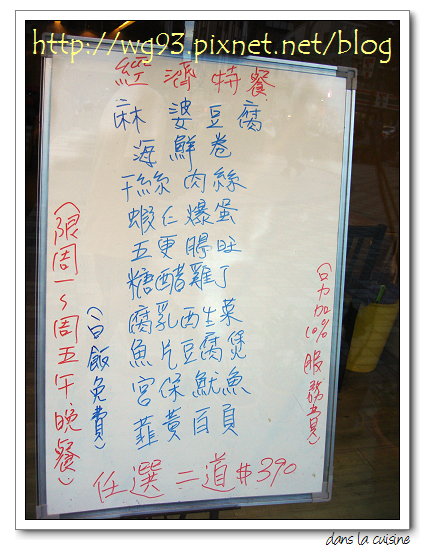 http://wg93.pixnet.net/blog
經濟特餐
麻婆豆腐
海鮮卷
干絲肉絲
蝦仁爆蛋
五更腸旺
糖醋雞丁
腐乳西生菜
魚片豆腐煲
宮保魷魚
韮黃百頁
任選二道$390
(另加10%服務費)
(白飯免費)
(限周一~周五午晚餐)
dans la cuisine